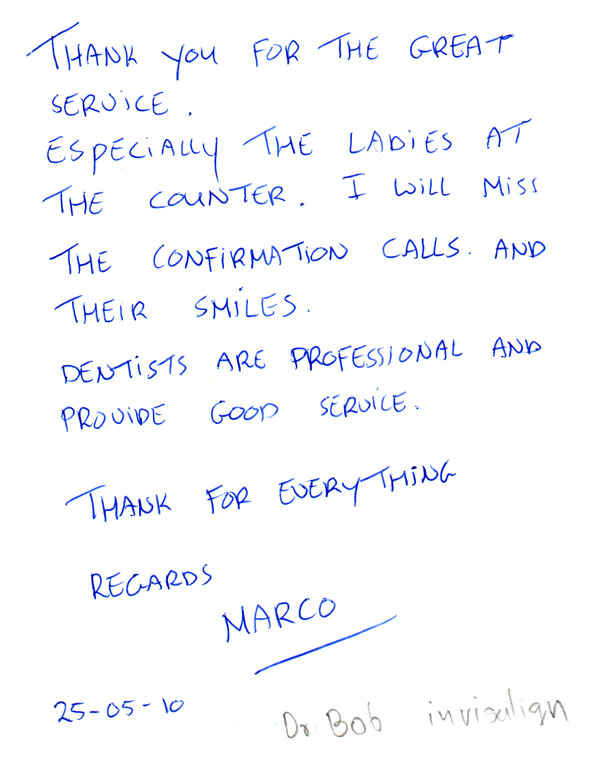 THANK YOU FOR THE GREAT
SERVICE.
ESPECIALLY THE LADIES AT
THE COUNTER. I WILL MISS
THE CONFIRMATION CALLS. AND
THEIR SMILES.
DENTISTS ARE PROFESSIONAL AND
PROVIDE GOOD SERVICE.
THANK FOR EVERYTHING
REGARDS
MARCO
25-05-10
Dr. Bob invisalign